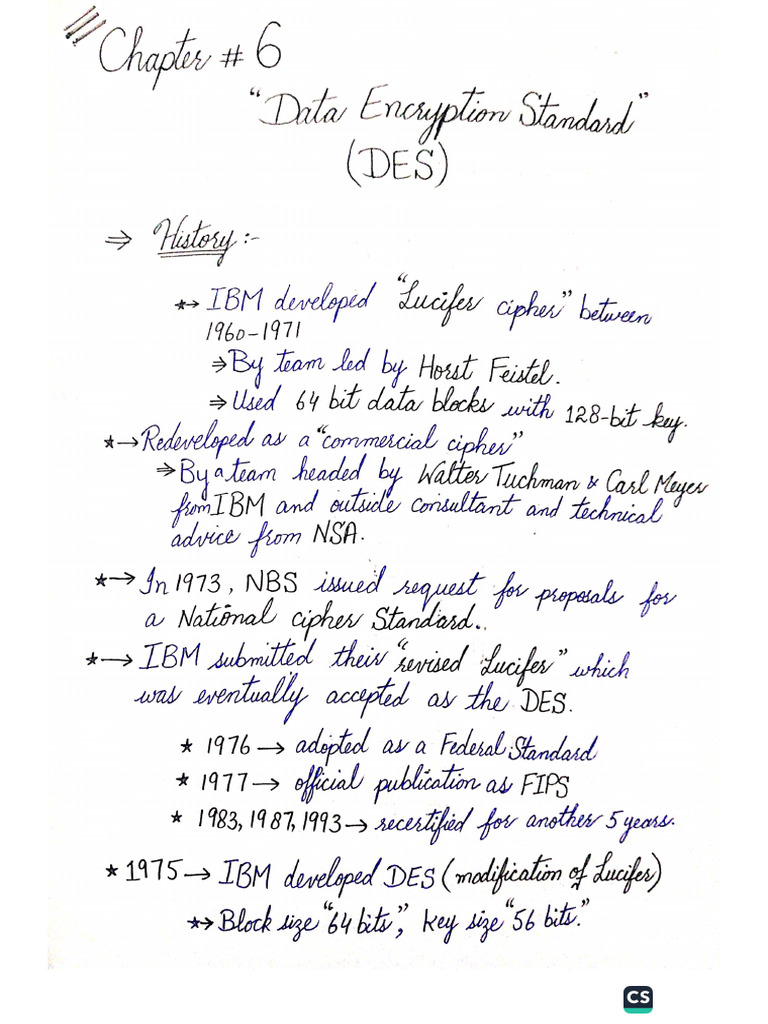 Chapter # 6
"Data Encryption Standard"
(DES)
⇒ History:-
*→ IBM developed "Lucifer cipher" between
1960-1971
⇒ By team led by Horst Feistel.
⇒ Used 64 bit data blocks with 128-bit key.
*→ Redeveloped as a "commercial cipher"
⇒ By a team headed by Walter Tuchman & Carl Meyer
from IBM and outside consultant and technical
advice from NSA.
*→ In 1973, NBS issued request for proposals for
a National cipher Standard..
*→ IBM submitted their "revised Lucifer" which
was eventually accepted as the DES.
* 1976 → adopted as a Federal Standard
* 1977 → official publication as FIPS
* 1983, 1987, 1993 → recertified for another 5 years.
* 1975 → IBM developed DES (modification of Lucifer)
*→ Block size "64 bits", key size "56 bits."
CS